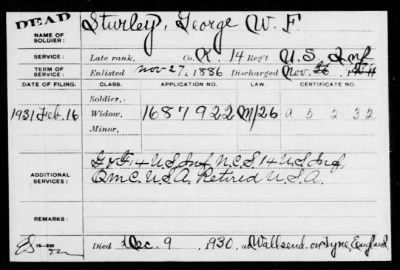 DEAD
NAME OF SOLDIER: Sturley, George W. F.
SERVICE: Late rank, Co. K, 14 Reg't U.S. Inf
TERM OF SERVICE: Enlisted Nov 27, 1886 Discharged Nov.
DATE OF FILING. CLASS. APPLICATION NO. LAW CERTIFICATE NO.
Soldier,
1931 Feb. 16 Widow, 1687922 M/26 A 5 2 32
Minor,
ADDITIONAL SERVICES: G & F, 14 U.S. Inf, N.C.S. 14 U.S. Inf,
QMC. U.S.A. Retired U.S.A.
REMARKS:
Died Dec. 9 1930, at Wallsend-on-Tyne, England